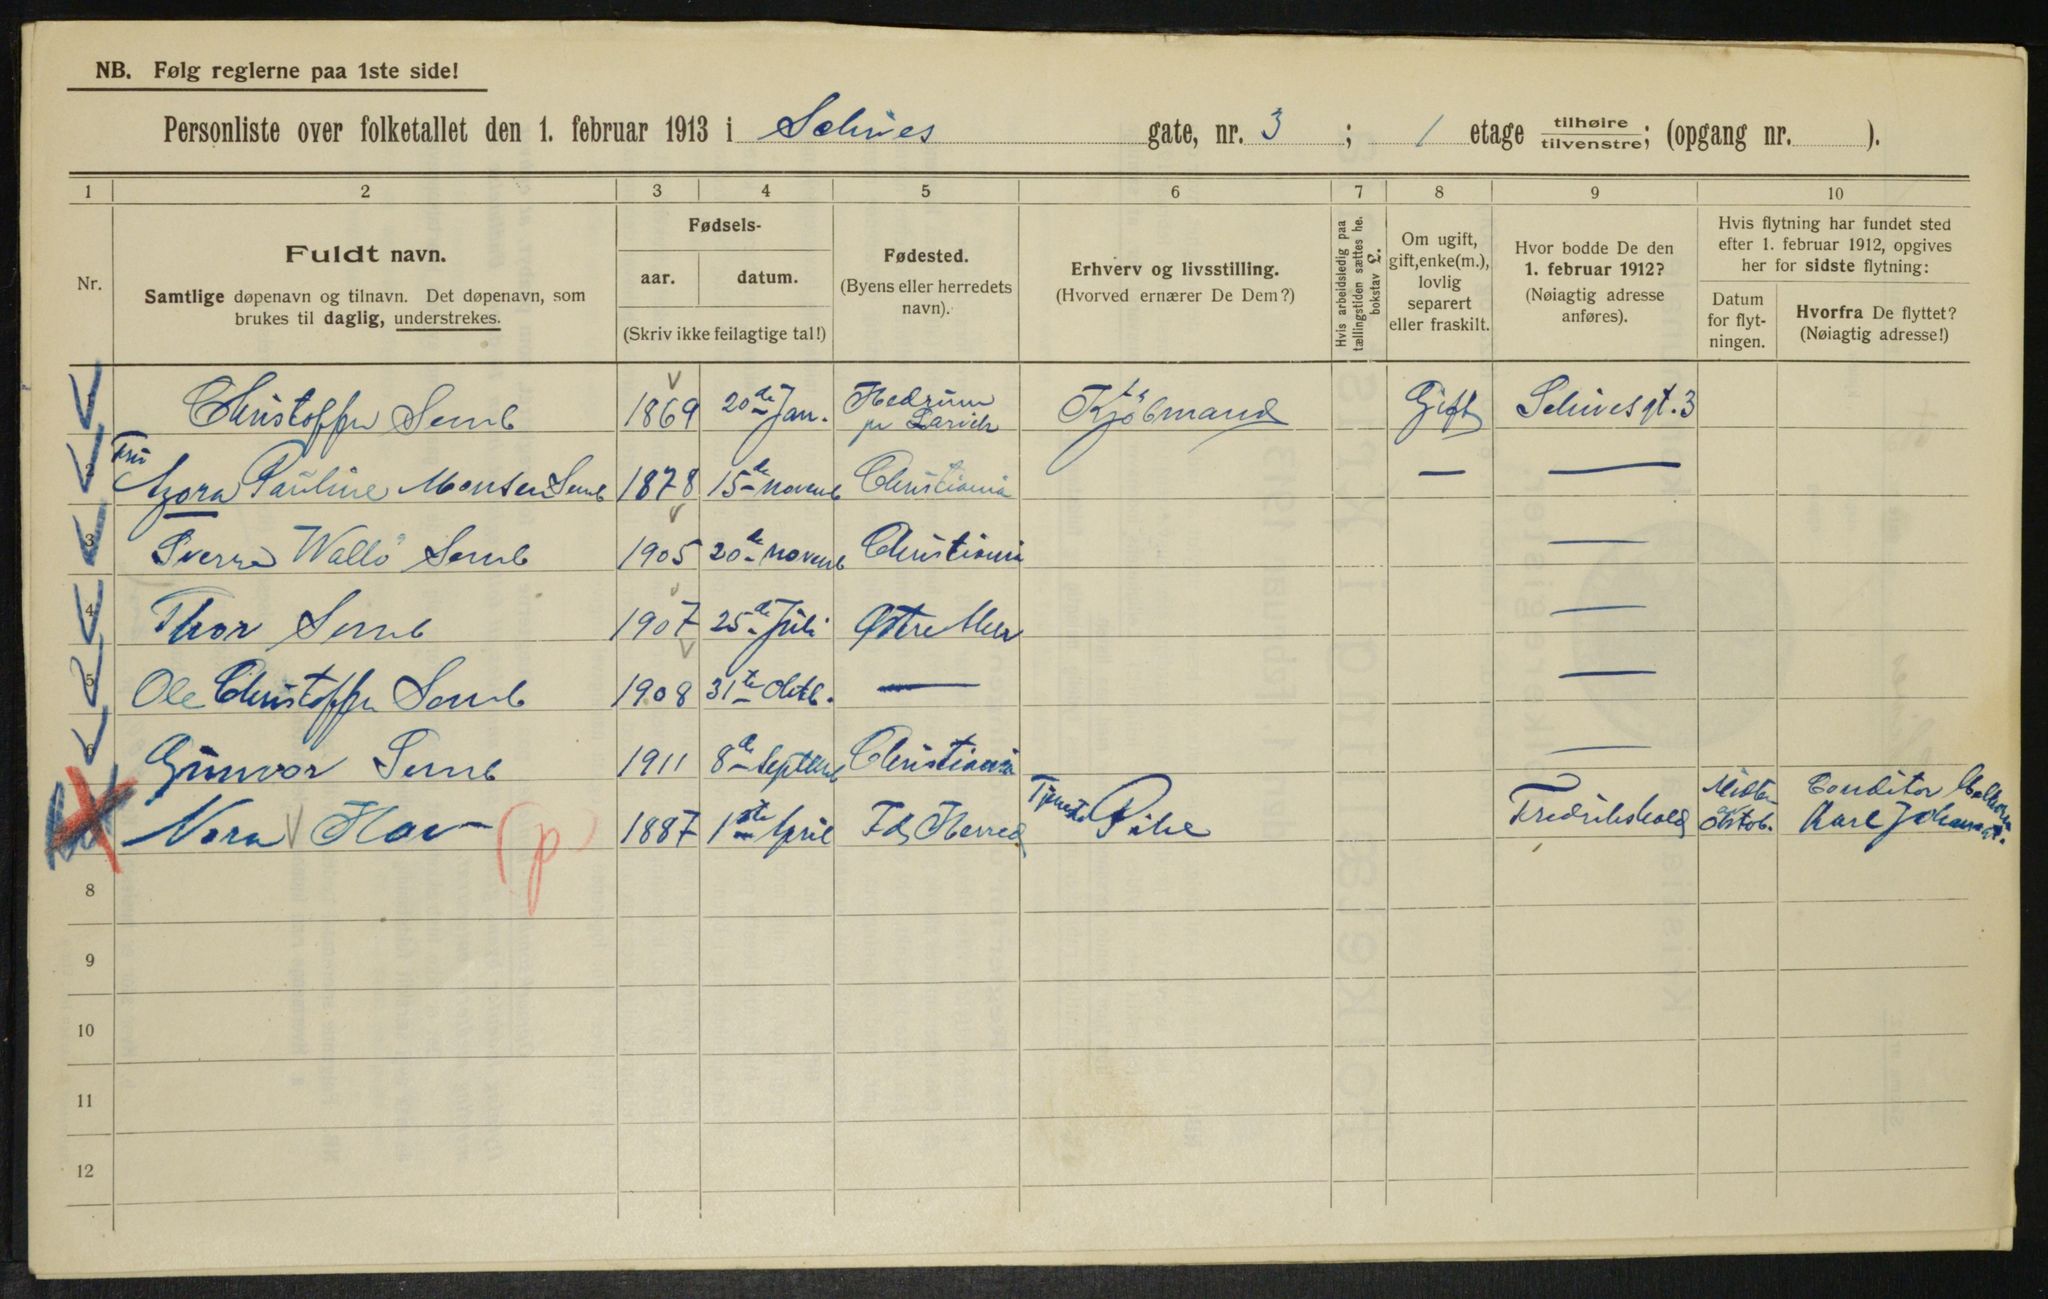 NB. Følg reglerne paa 1ste side!
Personliste over folketallet den 1. februar 1913 i Schives gate, nr. 3 ; 1 etage tilhøire tilvenstre; (opgang nr. ).
1 2 3 4 5 6 7 8 9 10
Nr.
Fuldt navn.
Samtlige døpenavn og tilnavn. Det døpenavn, som
brukes til daglig, understrekes.
Fødsels-
aar. datum.
(Skriv ikke feilagtige tal!)
Fødested.
(Byens eller herredets
navn).
Erhverv og livsstilling.
(Hvorved ernærer De Dem?)
Hvis arbeidsledig paa
tællingstiden sættes he.
bokstav L.
Om ugift,
gift, enke(m.),
lovlig
separert
eller fraskilt.
Hvor bodde De den
1. februar 1912?
(Nøiagtig adresse
anføres).
Hvis flytning har fundet sted
efter 1. februar 1912, opgives
her for sidste flytning:
Datum
for flyt-
ningen.
Hvorfra De flyttet?
(Nøiagtig adresse!)
Christoffer Semb 1869 20de Jan. Hedrum pr Larvik Kjöbmand Gift Schivesgt. 3
2 Fru Azora Pauline Monsen Semb 1878 15de novemb Christiania — —
3 Sverre Wallö Semb 1905 20de novemb Christiania —
4 Thor Semb 1907 25de Juli Østre Aker —
5 Ole Christoffer Semb 1908 31te Oktb. — —
6 Gunvor Semb 1911 8de Septemb Christiania —
Nora Hov (p) 1887 1ste April Ids Herred Tjeneste Pike Fredrikshald Midten Oktob. Conditor Karl Johansgt.
8
9
10
11
12